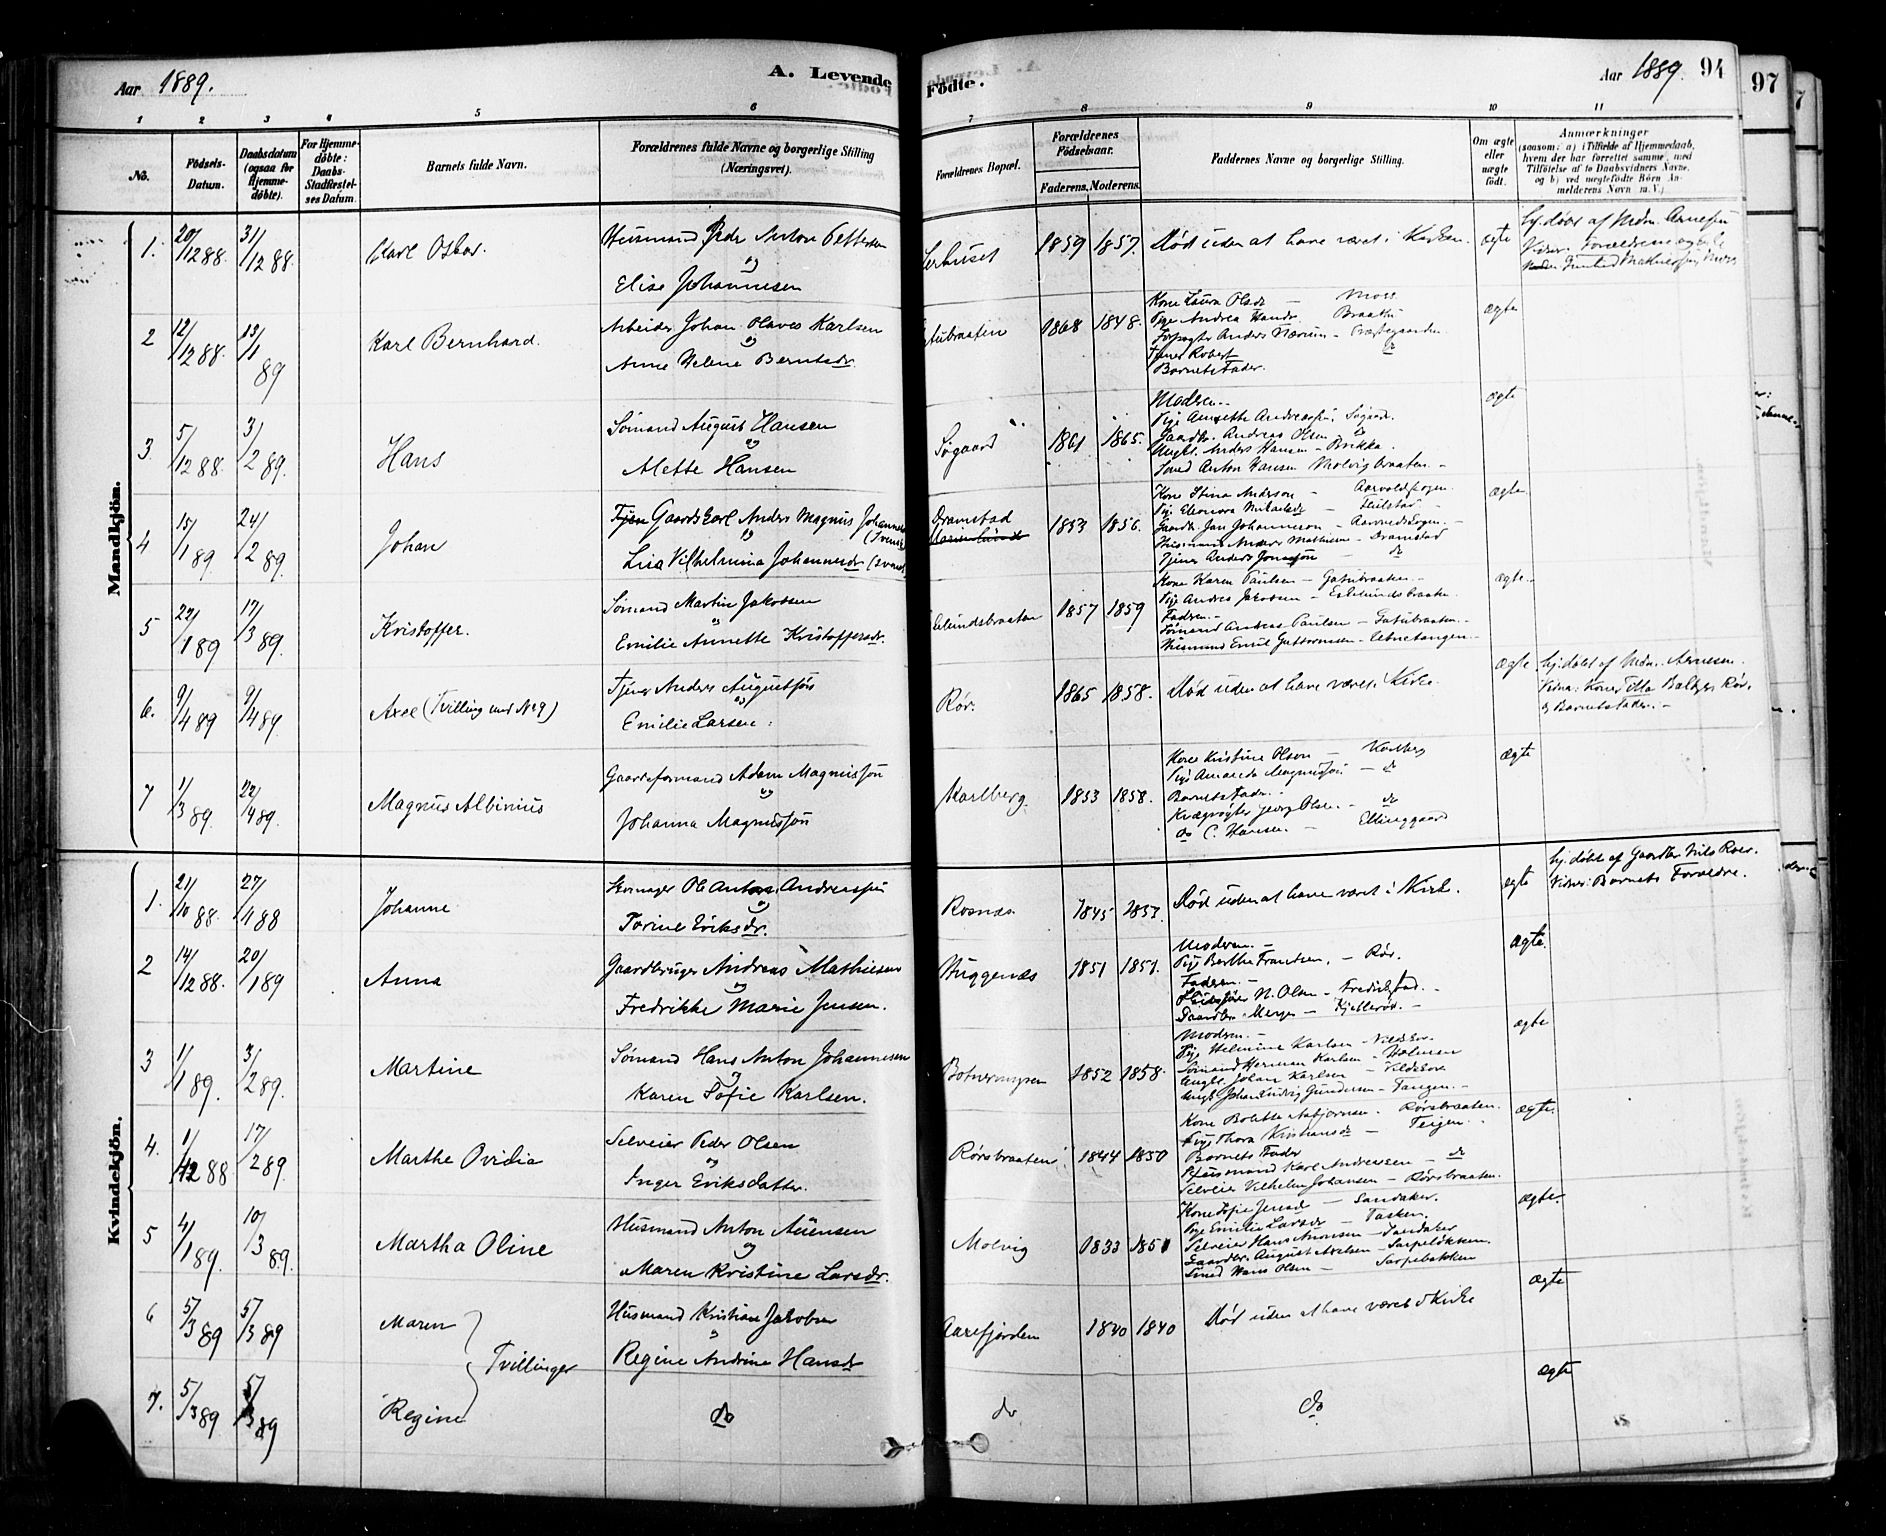 Aar 1889.
A. Levende
Fødte.
Aar 1889. 94
97
1 2 3 4 5 6
7 8 9 10 11
No.
Fødsels-Datum.
Daabsdatum (ogsaa for Hjemmedøbte).
For Hjemmedøbte: Daabs-Stadfæstelses Datum.
Barnets fulde Navn.
Forældrenes fulde Navne og borgerlige Stilling (Næringsvei).
Forældrenes Bopæl.
Forældrenes Fødselsaar.
Faderens. Moderens.
Faddernes Navne og borgerlige Stilling.
Om ægte eller uægte født.
Anmærkninger (saasom: a) i Tilfælde af Hjemmedaab, hvem der har forrettet samme, med Tilføielse af to Daabsvidners Navne, og b) ved uægtefødte Børn Anmelderens Navn m. V.)
Mandkjön.
1. 20/12 88. 31/12 88. Carl Oskar.
Husmand Peder Anton Pettersen
og
Elise Johannesen
1859 1857. Død uden at have været i Kirken. ægte
hj. døbt af Mdm. Arnesen
2 12/12 88. 13/1 89 Karl Bernhard.
Arbeider Johan Olaves Karlsen
og
Anne Helene Berntsdr.
1868 1848.
Kone Laura Olsdr — Moss
Pige Andrea Hansdr. Braathe
Forpagter Anders Nærum - Præstegaarden
Tjener Robert do
Barnets Fader.
ægte
3. 5/12 88. 3/2 89. Hans
Sømand August Hansen
og
Alette Hansen
Søgaard 1861 1865.
Modren.
Pige Annette Andreasen, Søgaard.
Gaardbr. Andreas Olsen do
Ungk. Anders Hansen - Brikka.
Smed Anton Hansen Molvigbraaten.
ægte
4 15/1 89 24/2 89. Johan
Gaardskarl Anders Magnus Johannes
og
Lisa Vilhelmina Johannesdr
Dramstad 1853 1856.
Kone Stina Anderson -
Pige Eleonora
Gaardb. Jan Johanneson -
Husmand Anders Mathisen - Dramstad
Tjener Anders Jonasson — do
ægte
5 22/1 89 17/3 89. Kristoffer.
Sømand Martin Jakobsen
og
Emilie Annette Kristoffersdr.
1857 1859
Kone Karen Paulsen — Gatubraaten.
Pige Andrea Jakobsen -
Fadren.
Sømand Andreas Paulsen — Gatubraaten.
Husmand Emil Guttormsen -
ægte
6. 9/4 89 9/4 89 Axel (Tvilling med No 9)
Tjener Anders Augustson
og
Emilie Larsen.
Rør. 1865 1858. Død uden at have været i Kirke. ægte
hj. døbt af Mdm. Arnesen.
og Barnets Fader.
7 1/3 89. 22/4 89. Magnus Albinius
Gaardsformand Adam Magnusson
og
Johanna Magnusson
Karlberg. 1853 1858.
Kone Kristine Olson — Karlberg
Pige Amanda Magnusson — do
Barnets Fader.
Kreaturrøgter Georg Olsen - do
do C. Hansen. — Ellinggaard
ægte
Kvindekjön.
1. 21/10 88. 27/11 88 Johanne
Skomager Ole Anton Andreassen
og
Torine Eriksdr.
Rosnæs 1845 1853. Død uden at have været i Kirke. ægte
hj. døbt af Gaardbr Nils Roer.
Vidner: Barnets Forældre.
2 14/12 88. 20/1 89 Anna
Gaardbruger Andreas Mathiesen
og
Fredrikke Marie Jensen.
Huggenæs 1851 1851.
Modren. —
Pige Berthe Frantsen, — Rør.
Fadren. —
N. Olsen - Fredrikstad.
Gaardbr. Meyer — Kjellerød.
ægte.
3 1/1 89. 3/2 89. Martine
Sømand Hans Anton Johannesen
og
Karen Sofie Karlsen.
1852 1858.
Modren. —
Pige Helmine Karlsen -
Sømand Herman Karlsen - Holmen
Ungk. Johan Karlsen —
Ungk. Johan Ludvig Gundersen - Tangen.
ægte
4. 1/12 88 17/2 89. Marthe Ovidia
Selveier Peder Olsen
og
Inger Eriksdatter.
Rørsbraaten 1844 1850
Kone Bolette Asbjornsen. Rørsbraaten.
Pige Thora Kristiansdr — Teigen.
Barnets Fader
Husmand Karl Andreassen — do
Selveier Vilhelm Johansen — Rørsbraaten.
ægte.
5 4/1 89. 10/3 89. Martha Oline
Husmand Anton Auensen
og
Maren Kristine Larsdr.
Molvig 1833 1851
Kone Sofie Jensdr — Sandaker.
Pige Emilie Larsdr — Tasken.
Selveier Hans Auensen — Sandaker
Gaardbr. August Axelsen - Sarpeløkken.
Smed Hans Olsen — Sarpebakken
ægte.
6 5/3 89 5/3 89 Maren
Husmand Kristian Jakobsen
og
Regine Andrine Hansdr
Aarefjorden 1840 1840 Død uden at have været i Kirke ægte
Tvillinger
7. 5/3 89 5/3 89 Regine do do do ægte